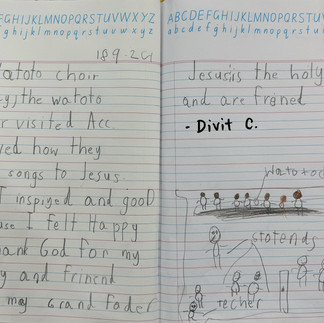 FGHIJKLMNOPQRSTUVWXYZ
fghijklmnopqrstuvwxyz
189-2G
atoto choir
y, the watoto
r visited Acc
ved how they
songs to Jesus.
I inspiged and good
use I felt Happy
hank God for my
y and Frinend
my Grand Fader
ABCDEFGHIJKLMNOPQRSTUVWXYZ
abcdefghijklmnopqrstuvwxyz
Jesusiis the holy
and are frined
- Divit C.
watoto c
stotends
techer